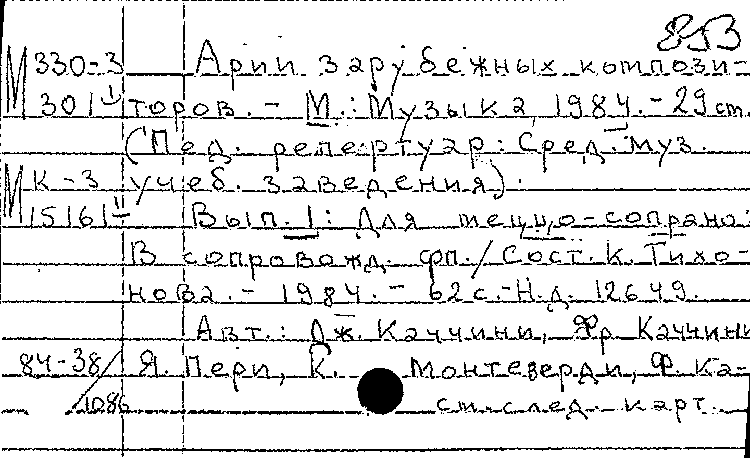 853
М 330-3 Арии зарубежных компози-
301 торов. - М.: Музыка, 1984. - 29 cm.
(Пед. репертуар: Сред. муз.
М К-3 учеб. заведения).
15161 Вып. 1: Для меццо-сопрано:
В сопровожд. фп. / Сост. К. Тихо-
нова. - 1984. - 62 с. - Н.д. 12649.
Авт.: Дж. Каччини, Фр. Каччини
84-38/ Я. Пери, К. Монтеверди, Ф. Ка-
1086 см. след. карт.